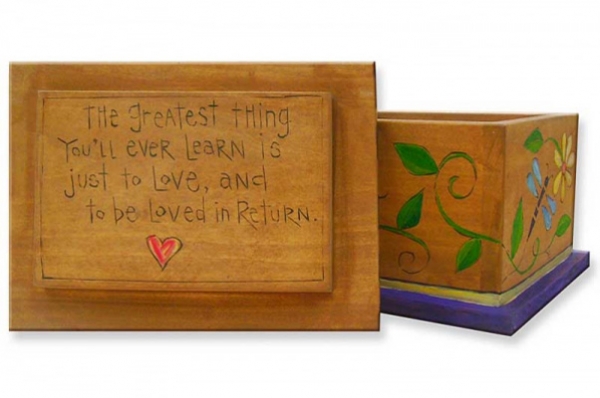 THe greatest tHing
You'll ever Learn is
just to Love, and
to be Loved in Return.